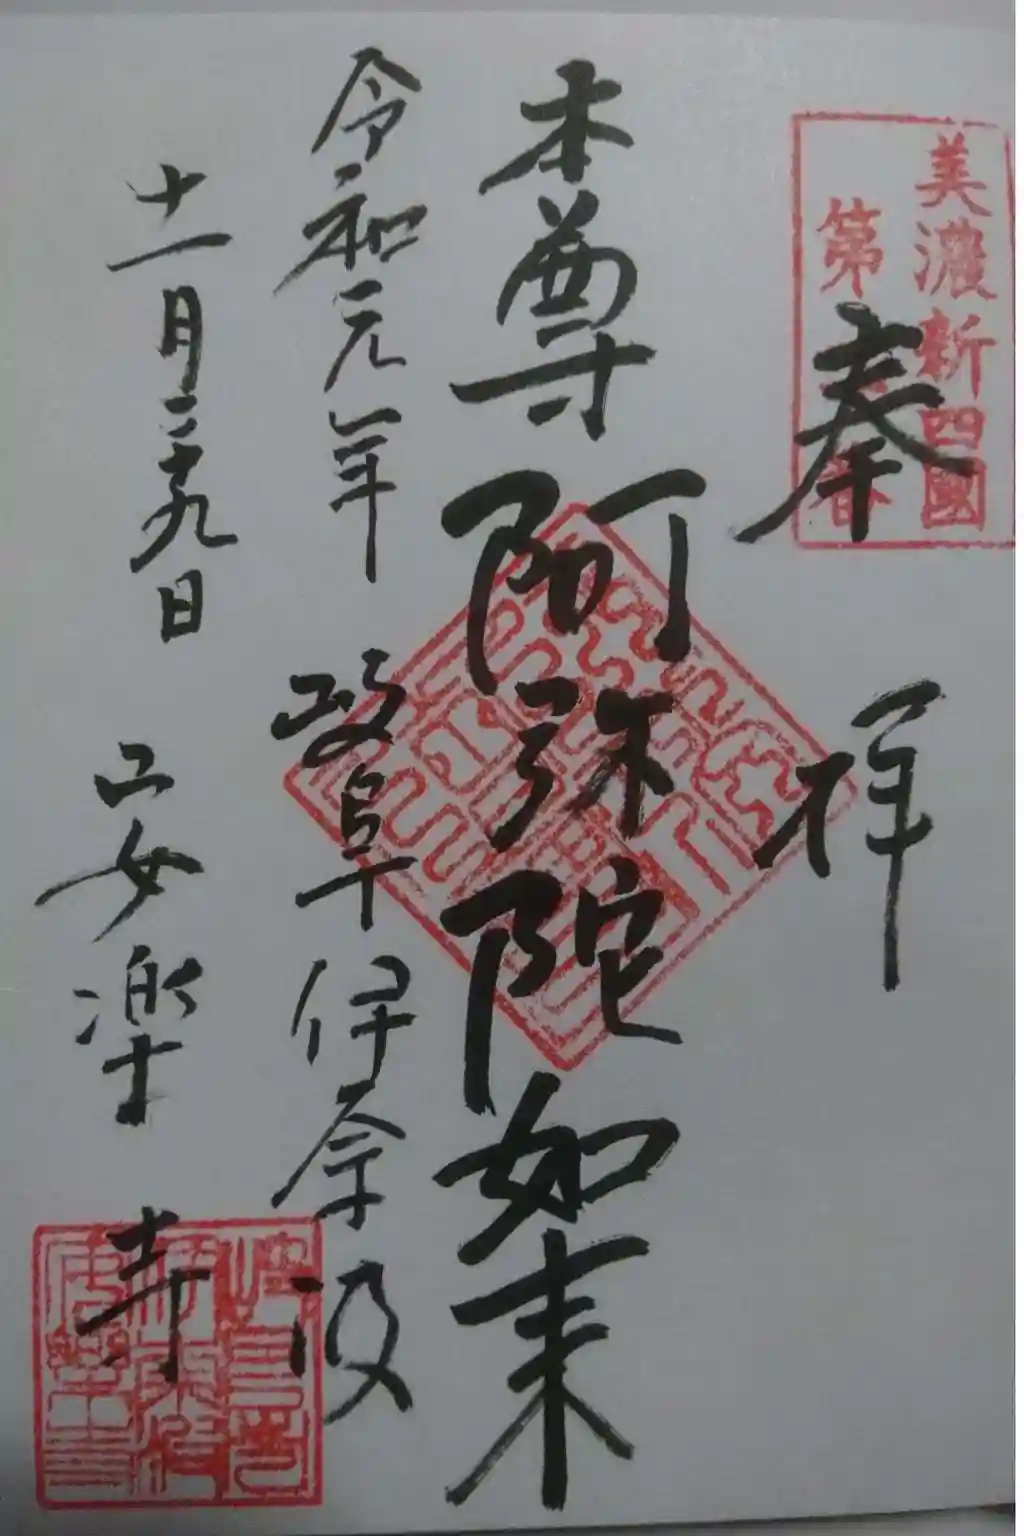 美濃新四國
第 番
奉 拝
本尊 阿弥陀如来
令和元年 岐阜伊奈波
十一月二十九日 安楽寺